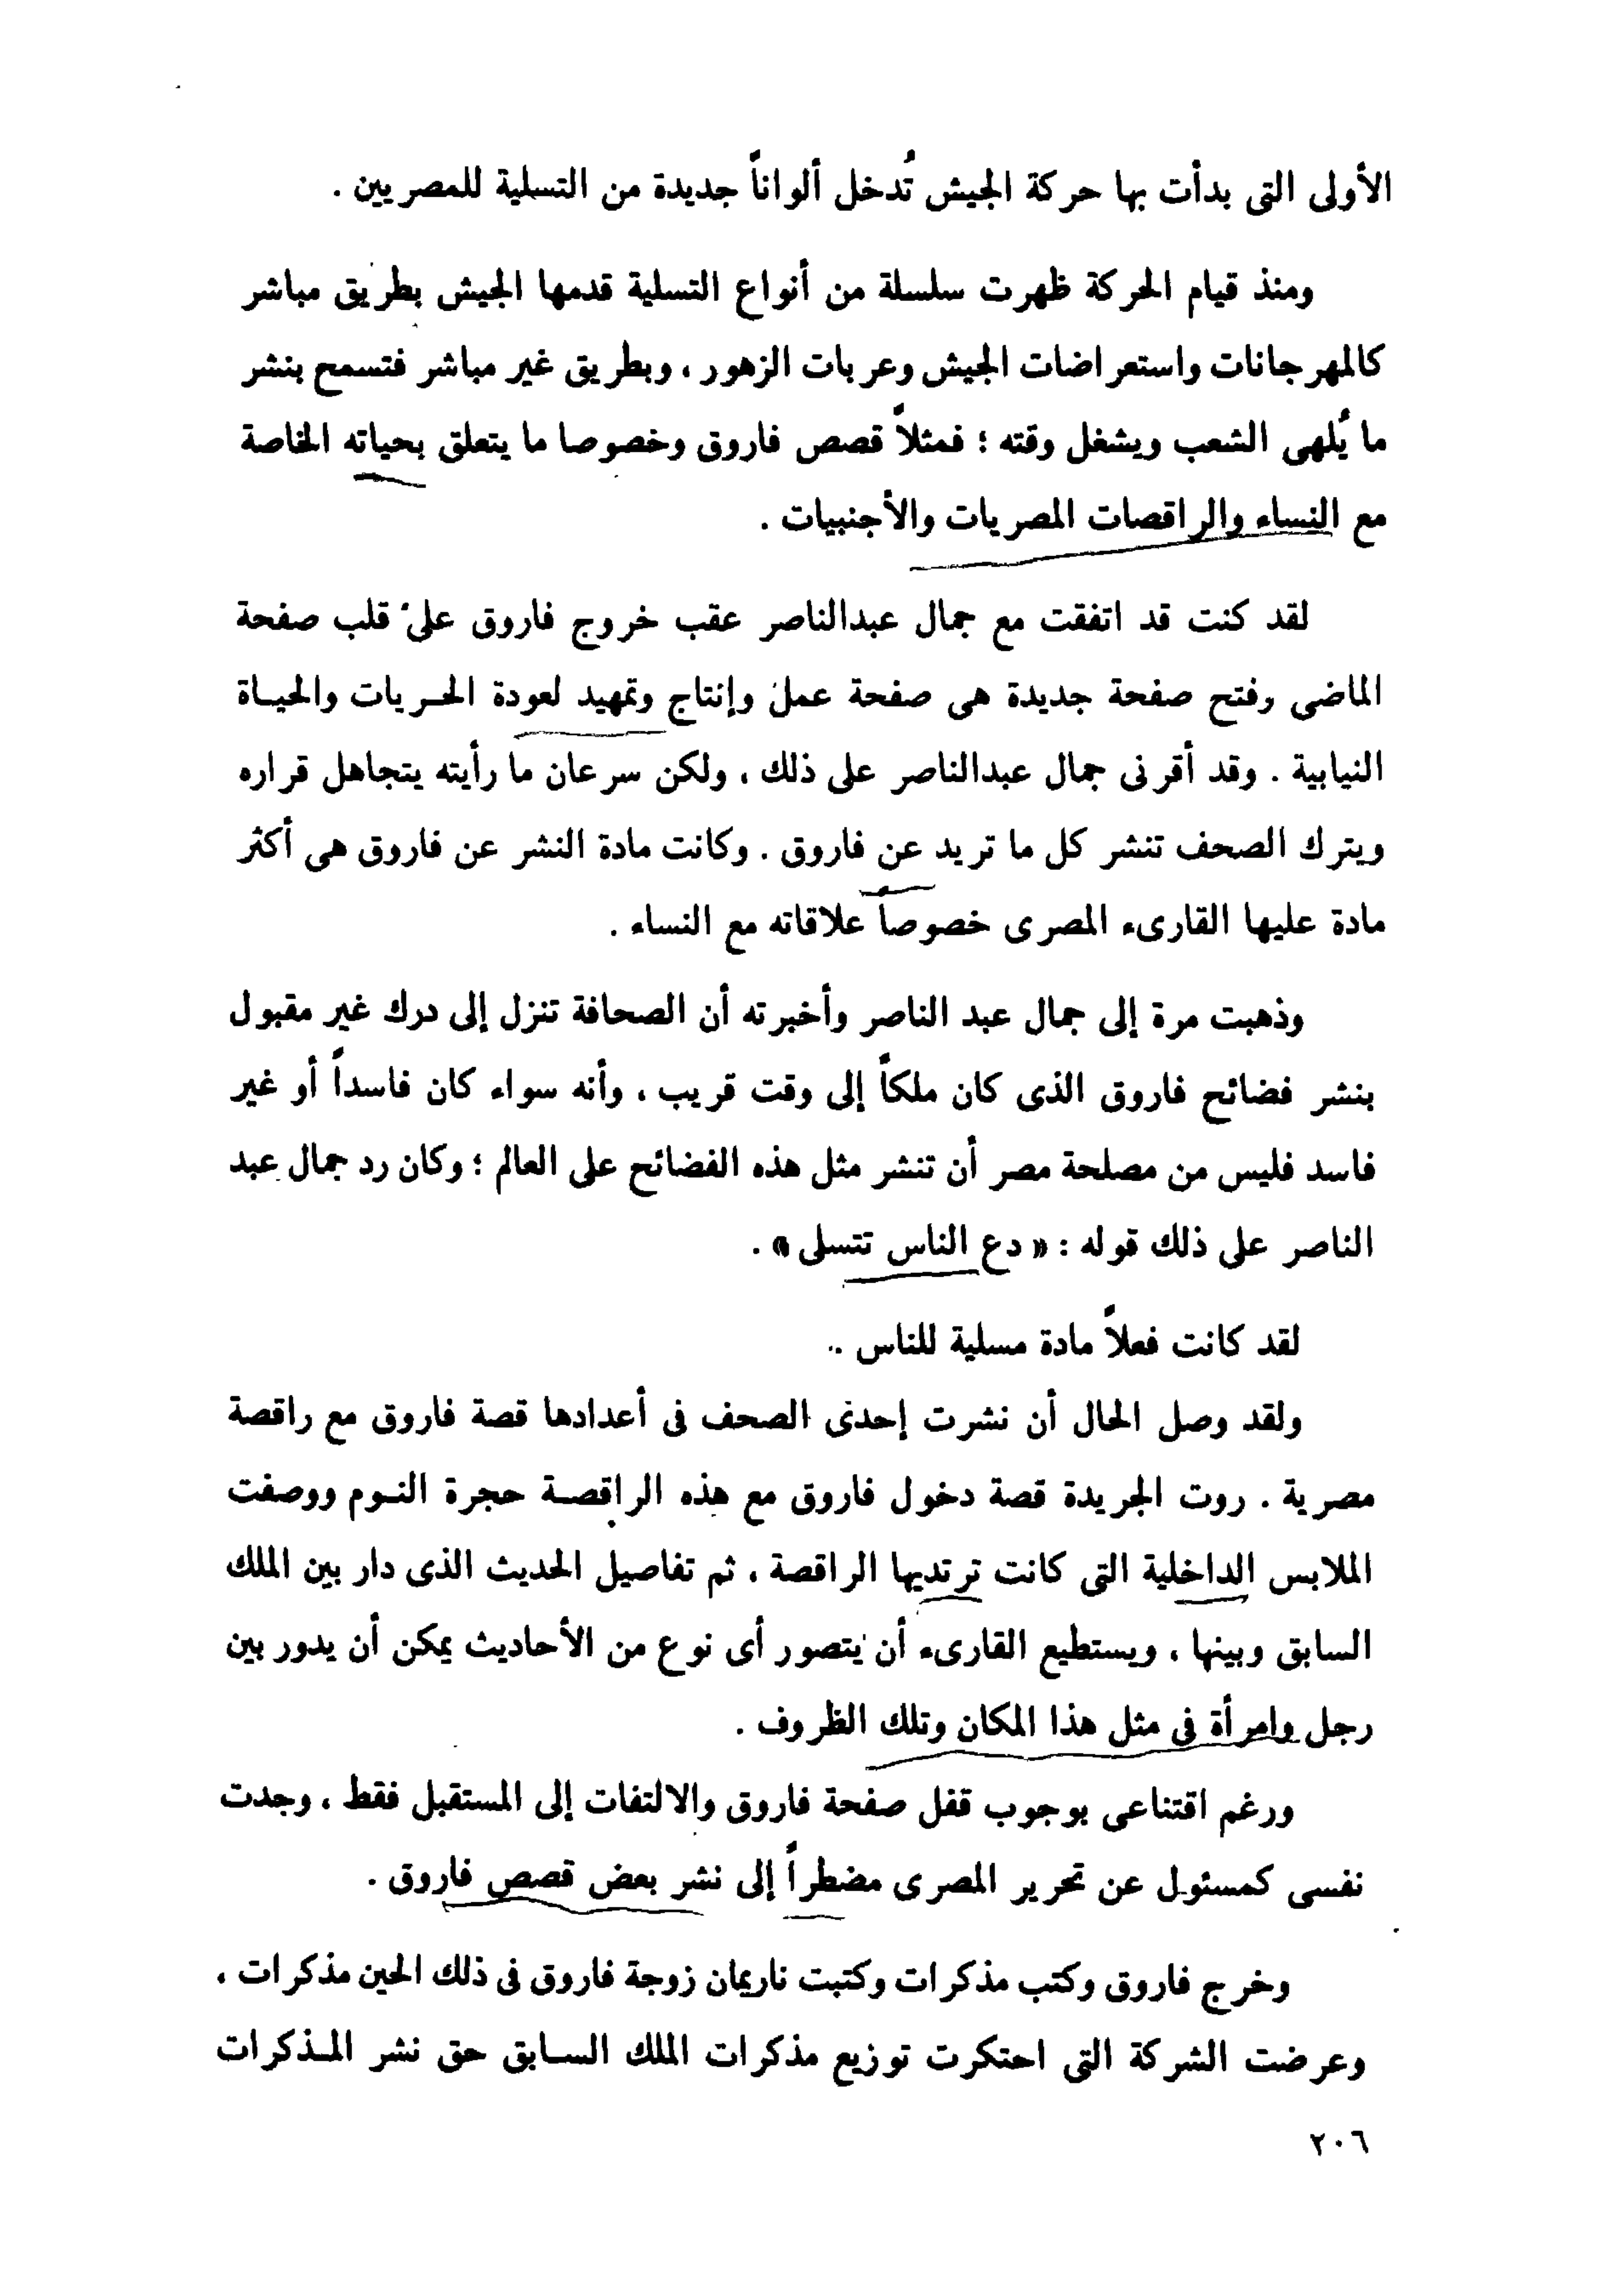 الأولى التى بدأت بها حركة الجيش تُدخل ألواناً جديدة من التسلية للمصريين .
ومنذ قيام الحركة ظهرت سلسلة من أنواع التسلية قدمها الجيش بطريق مباشر
كالمهرجانات واستعراضات الجيش وعربات الزهور ، وبطريق غير مباشر فتسمح بنشر
ما يُلهى الشعب ويشغل وقته ؛ فمثلاً قصص فاروق وخصوصا ما يتعلق بحياته الخاصة
مع النساء والراقصات المصريات والأجنبيات .
لقد كنت قد اتفقت مع جمال عبدالناصر عقب خروج فاروق على قلب صفحة
الماضى وفتح صفحة جديدة هى صفحة عمل وإنتاج وتمهيد لعودة الحريات والحياة
النيابية . وقد أقرنى جمال عبدالناصر على ذلك ، ولكن سرعان ما رأيته يتجاهل قراره
ويترك الصحف تنشر كل ما تريد عن فاروق . وكانت مادة النشر عن فاروق هى أكثر
مادة عليها القارىء المصرى خصوصاً علاقاته مع النساء .
وذهبت مرة إلى جمال عبد الناصر وأخبرته أن الصحافة تنزل إلى درك غير مقبول
بنشر فضائح فاروق الذى كان ملكاً إلى وقت قريب ، وأنه سواء كان فاسداً أو غير
فاسد فليس من مصلحة مصر أن تنشر مثل هذه الفضائح على العالم ؛ وكان رد جمال عبد
الناصر على ذلك قوله : « دع الناس تتسلى » .
لقد كانت فعلاً مادة مسلية للناس ..
ولقد وصل الحال أن نشرت إحدى الصحف فى أعدادها قصة فاروق مع راقصة
مصرية . روت الجريدة قصة دخول فاروق مع هذه الراقصة حجرة النوم ووصفت
الملابس الداخلية التى كانت ترتديها الراقصة ، ثم تفاصيل الحديث الذى دار بين الملك
السابق وبينها ، ويستطيع القارىء أن يتصور أى نوع من الأحاديث يمكن أن يدور بين
رجل وامرأة فى مثل هذا المكان وتلك الظروف .
ورغم اقتناعى بوجوب قفل صفحة فاروق والالتفات إلى المستقبل فقط ، وجدت
نفسى كمسئول عن تحرير المصرى مضطراً إلى نشر بعض قصص فاروق .
وخرج فاروق وكتب مذكرات وكتبت ناريمان زوجة فاروق فى ذلك الحين مذكرات ،
وعرضت الشركة التى احتكرت توزيع مذكرات الملك السابق حق نشر المذكرات
٢٠٦